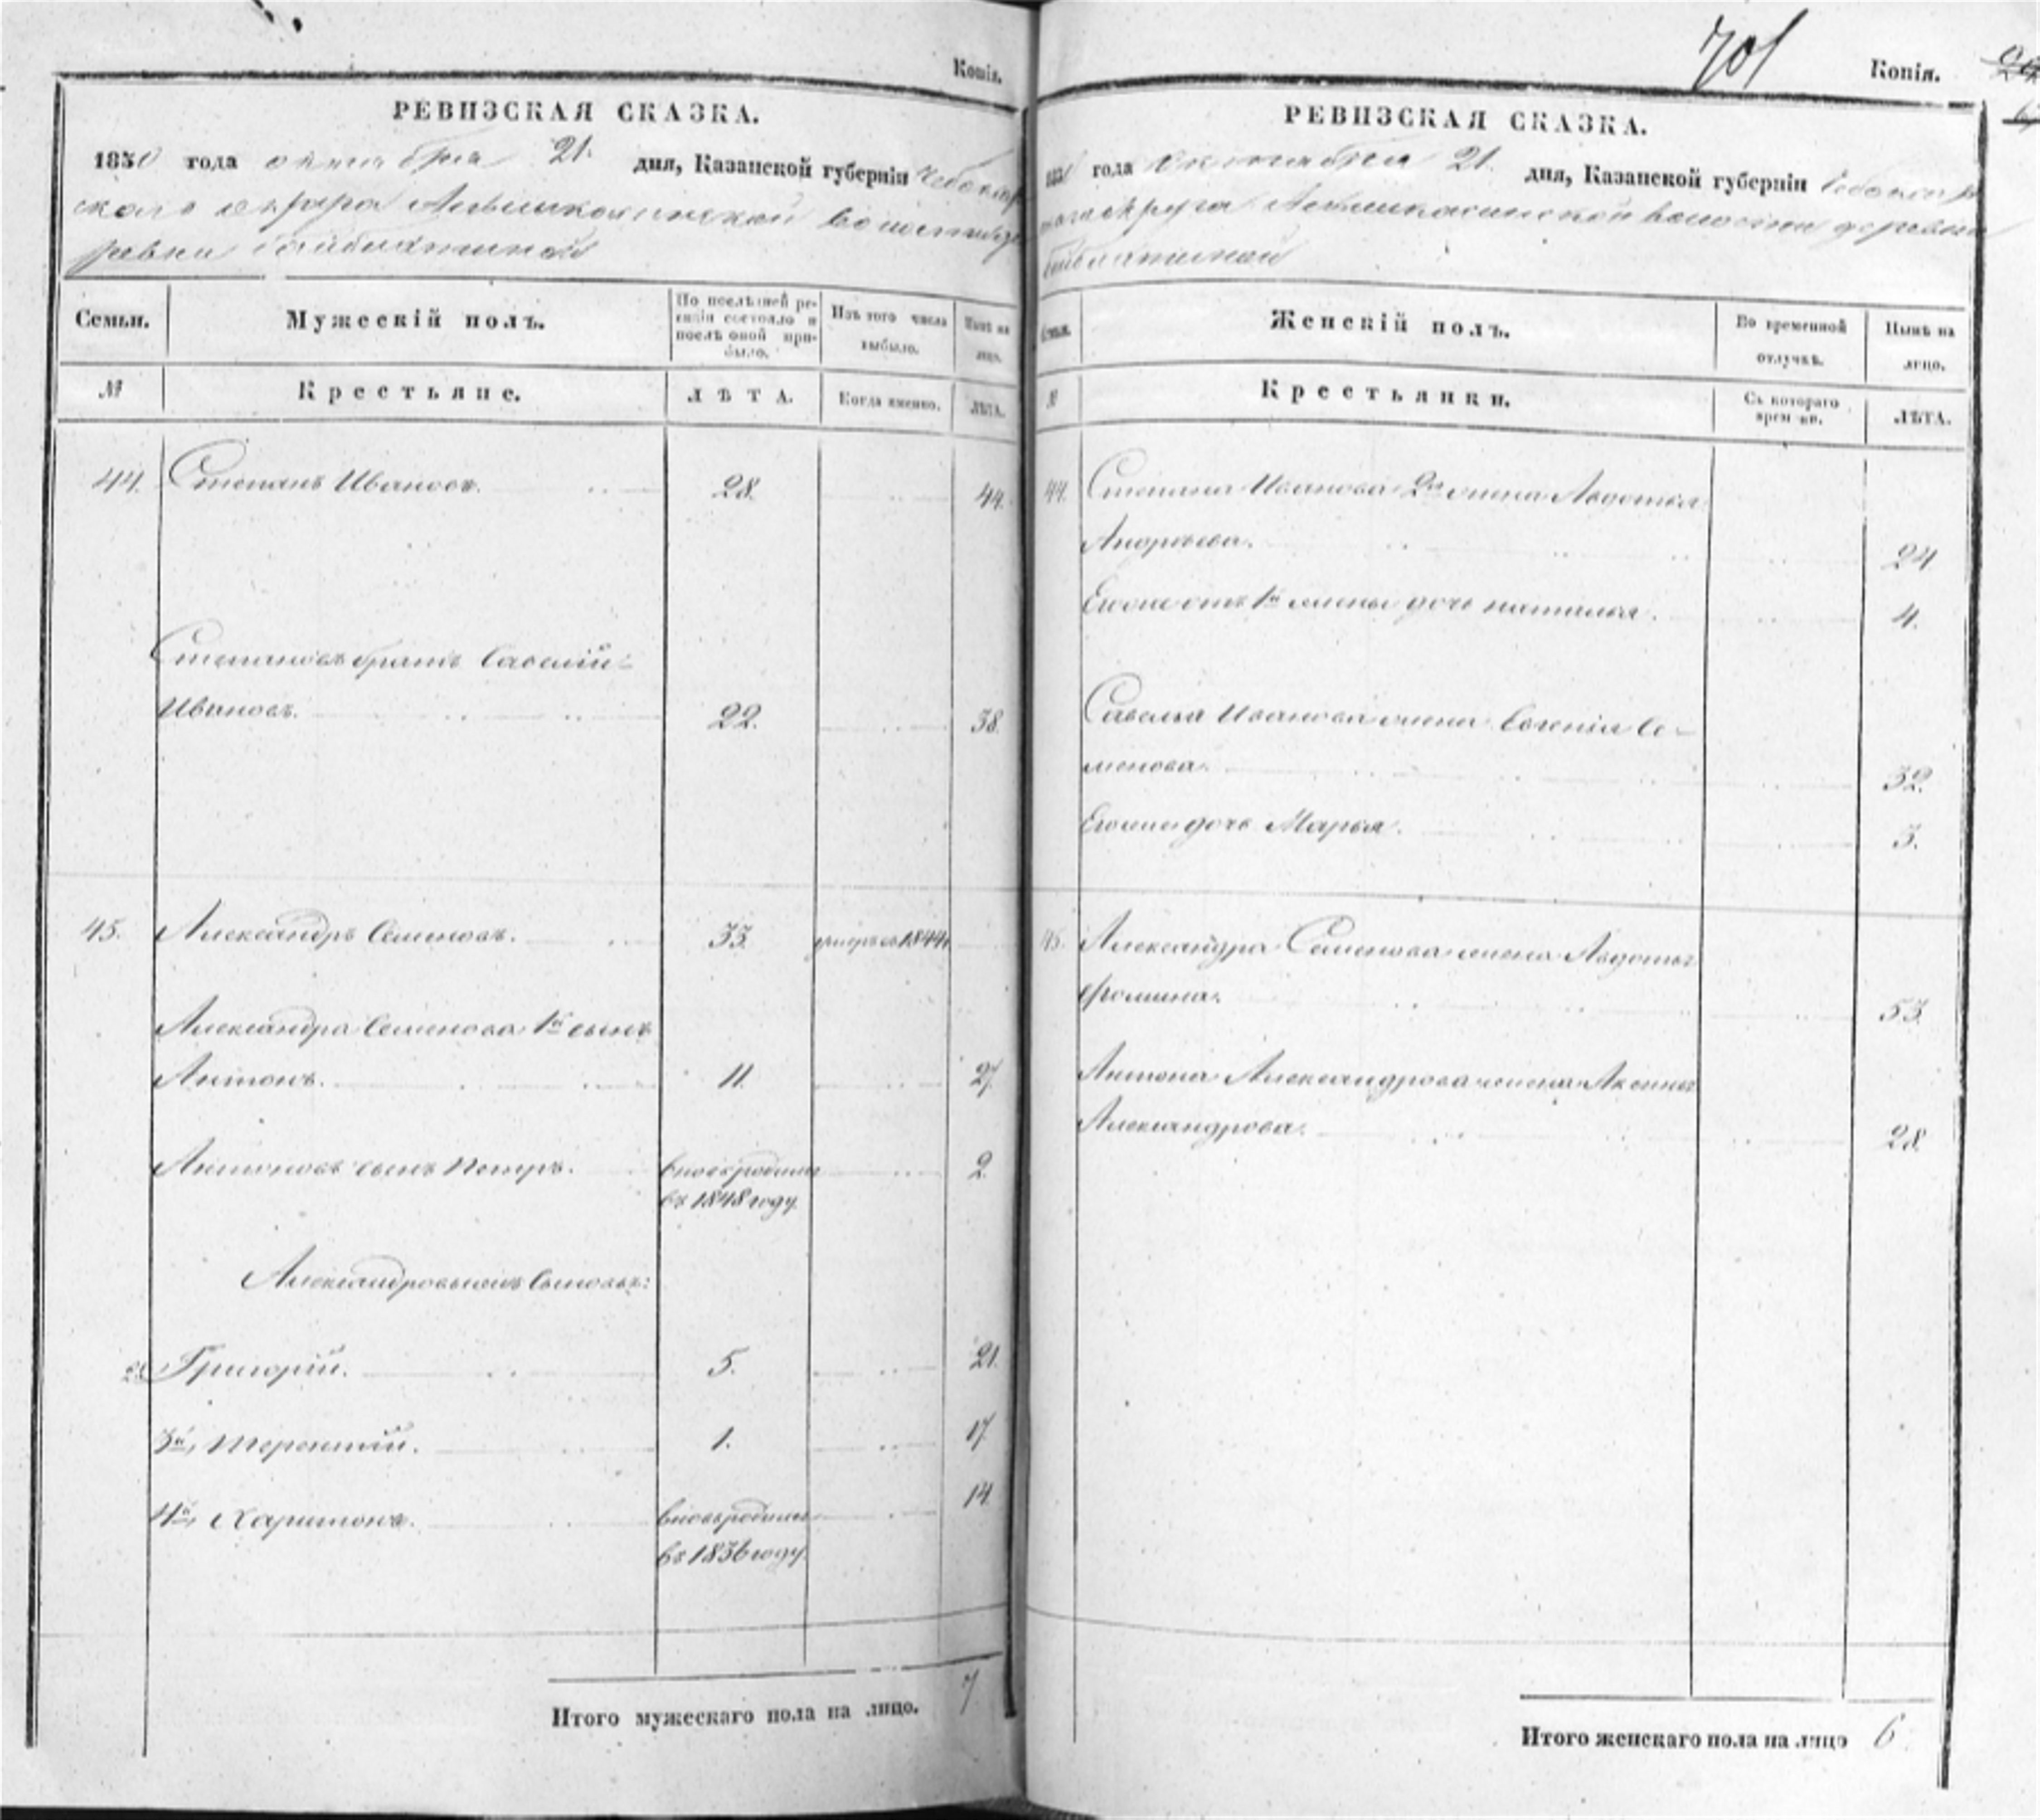 Копія.
РЕВИЗСКАЯ СКАЗКА.
1850 года октября 21 дня, Казанской губерніи Чебоксар
скаго округа волости де
ревни
Семьи. Мужескій полъ. По послѣдней ре-
визіи состояло и
послѣ оной при-
было. Изъ того числа
выбыло. Нынѣ на
лицо.
№ Крестьяне. ЛѢТА. Когда именно. ЛѢТА.
44. Степанъ Ивановъ. 28. 44.
Степановъ братъ Савелій
Ивановъ. 22. 38.
45. Александръ Семеновъ. 33. умеръ въ 1844
Александра Семенова 1й сынъ
Антонъ. 11. 27.
Антоновъ сынъ Петръ. вновьрожден 2.
въ 1848 году.
Александровы сыновья:
2й Григорій. 5. 21.
3й, Терентій. 1. 17
4й, Харитонъ. вновьрожден 14
въ 1836 году.
Итого мужескаго пола на лицо. 7
701 Копія.
РЕВИЗСКАЯ СКАЗКА.
года октября 21 дня, Казанской губерніи Чебоксар
скаго округа волости деревни
Семьи. Женскій полъ. Во временной
отлучкѣ. Нынѣ на
лицо.
№ Крестьянки. Съ котораго
времени. ЛѢТА.
44. Степана Иванова 2я жена Авдотья
Андреева. 24
Егоже отъ 1й жены дочь наталья. 4.
Савелья Иванова жена Евгенія Се-
менова. 32.
Егоже дочь Марья. 3.
45. Александра Семенова жена Авдотья
Фомина. 53.
Антона Александрова жена Аксинья
Александрова. 28.
Итого женскаго пола на лицо 6.